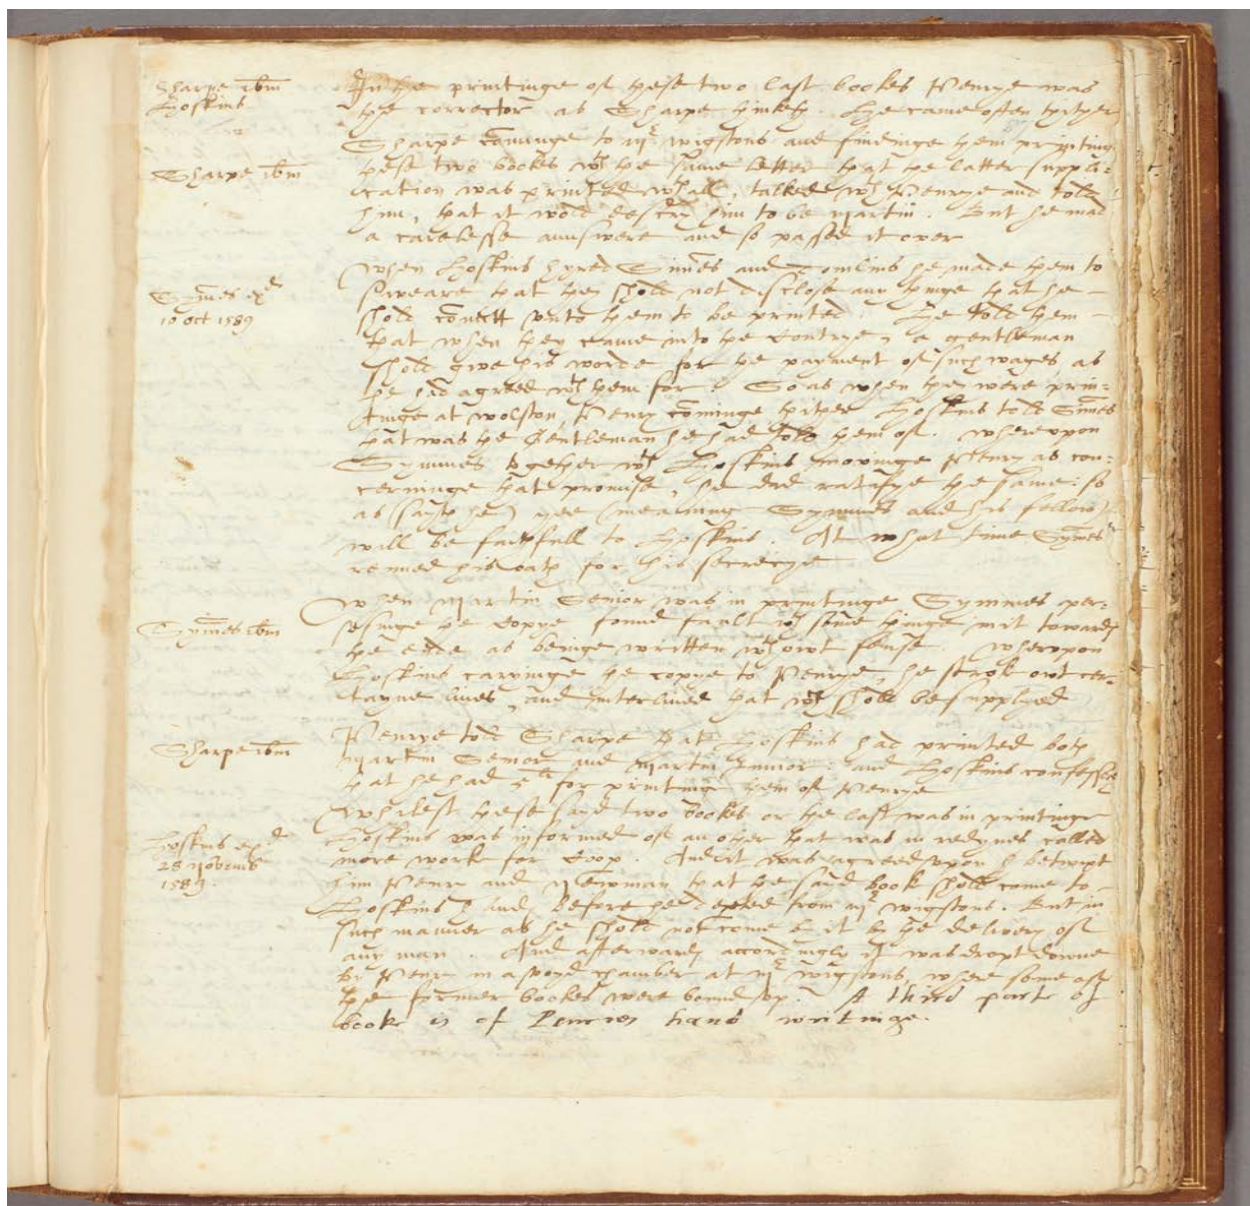 Sharpe ibm
Hoskins
In the printinge of these two last bookes Penrye was
the corrector as Sharpe thinketh. He came often thyther
Sharpe cominge to Mr Wigstons and findinge them printing
Sharpe ibm
these two bookes wth the same letter that the latter suppli-
cation was printed wthall, talked wth Penrye and told
him, that it wold descry him to be Martin. But he mad
a carelesse aunswere and so passed it over
When Hoskins hyred Simes and Tomlins he made them to
Symes exd
10 Oct 1589
sweare that they shold not disclose any thinge that he
shold comitt unto them to be printed. He told them
that when they came into the contrye, a gentleman
shold give his worde for the payment of such wages as
he had agreed wth them for. So as when they were prin-
tinge at Wolston, Penry cominge thither Hoskins told Simes
that was the Gentleman he had told them of. Whereupon
Symmes together wth Hoskins movinge Penry as con-
cerninge that promise, he did ratefye the same: so
as (sayth he) yee (meaning Symmes and his fellow)
will be faithfull to Hoskins. At what time Symes
renued his oath for his secrecye
When Martin Senior was in printinge Symmes per-
Symes ibm
usinge the copye found fault wth some thinge in it towards
the ende as beinge written wthowt sense. Wherupon
Hoskins caryinge the copye to Penrye, he strok owt cer-
tayne lines, and interlined that wch shold be supplyed
Penrye told Sharpe that Hoskins had printed both
Sharpe ibm
Martin Senior and Martin Junior: and Hoskins confesseth
that he had 5li for printing them of Penrye
Whilest these sayd two bookes or the last was in printinge
Hoskins exd
28 Novemb
1589.
Hoskins was informed of an other that was in redynes called
more work for Coop. And it was agreed upon betwixt
him Penry and Newman that the sayd book shold come to
Hoskins hand before he depted from Mr Wigstons. But in
such manner as he shold not come by it by the delivery of
any man. And afterwards accordingly it was dropt downe
by Penry in a voyd chamber at Mr Wigstons, where some of
the former bookes were bound up. A third parte of
booke is of Penries hand writinge.